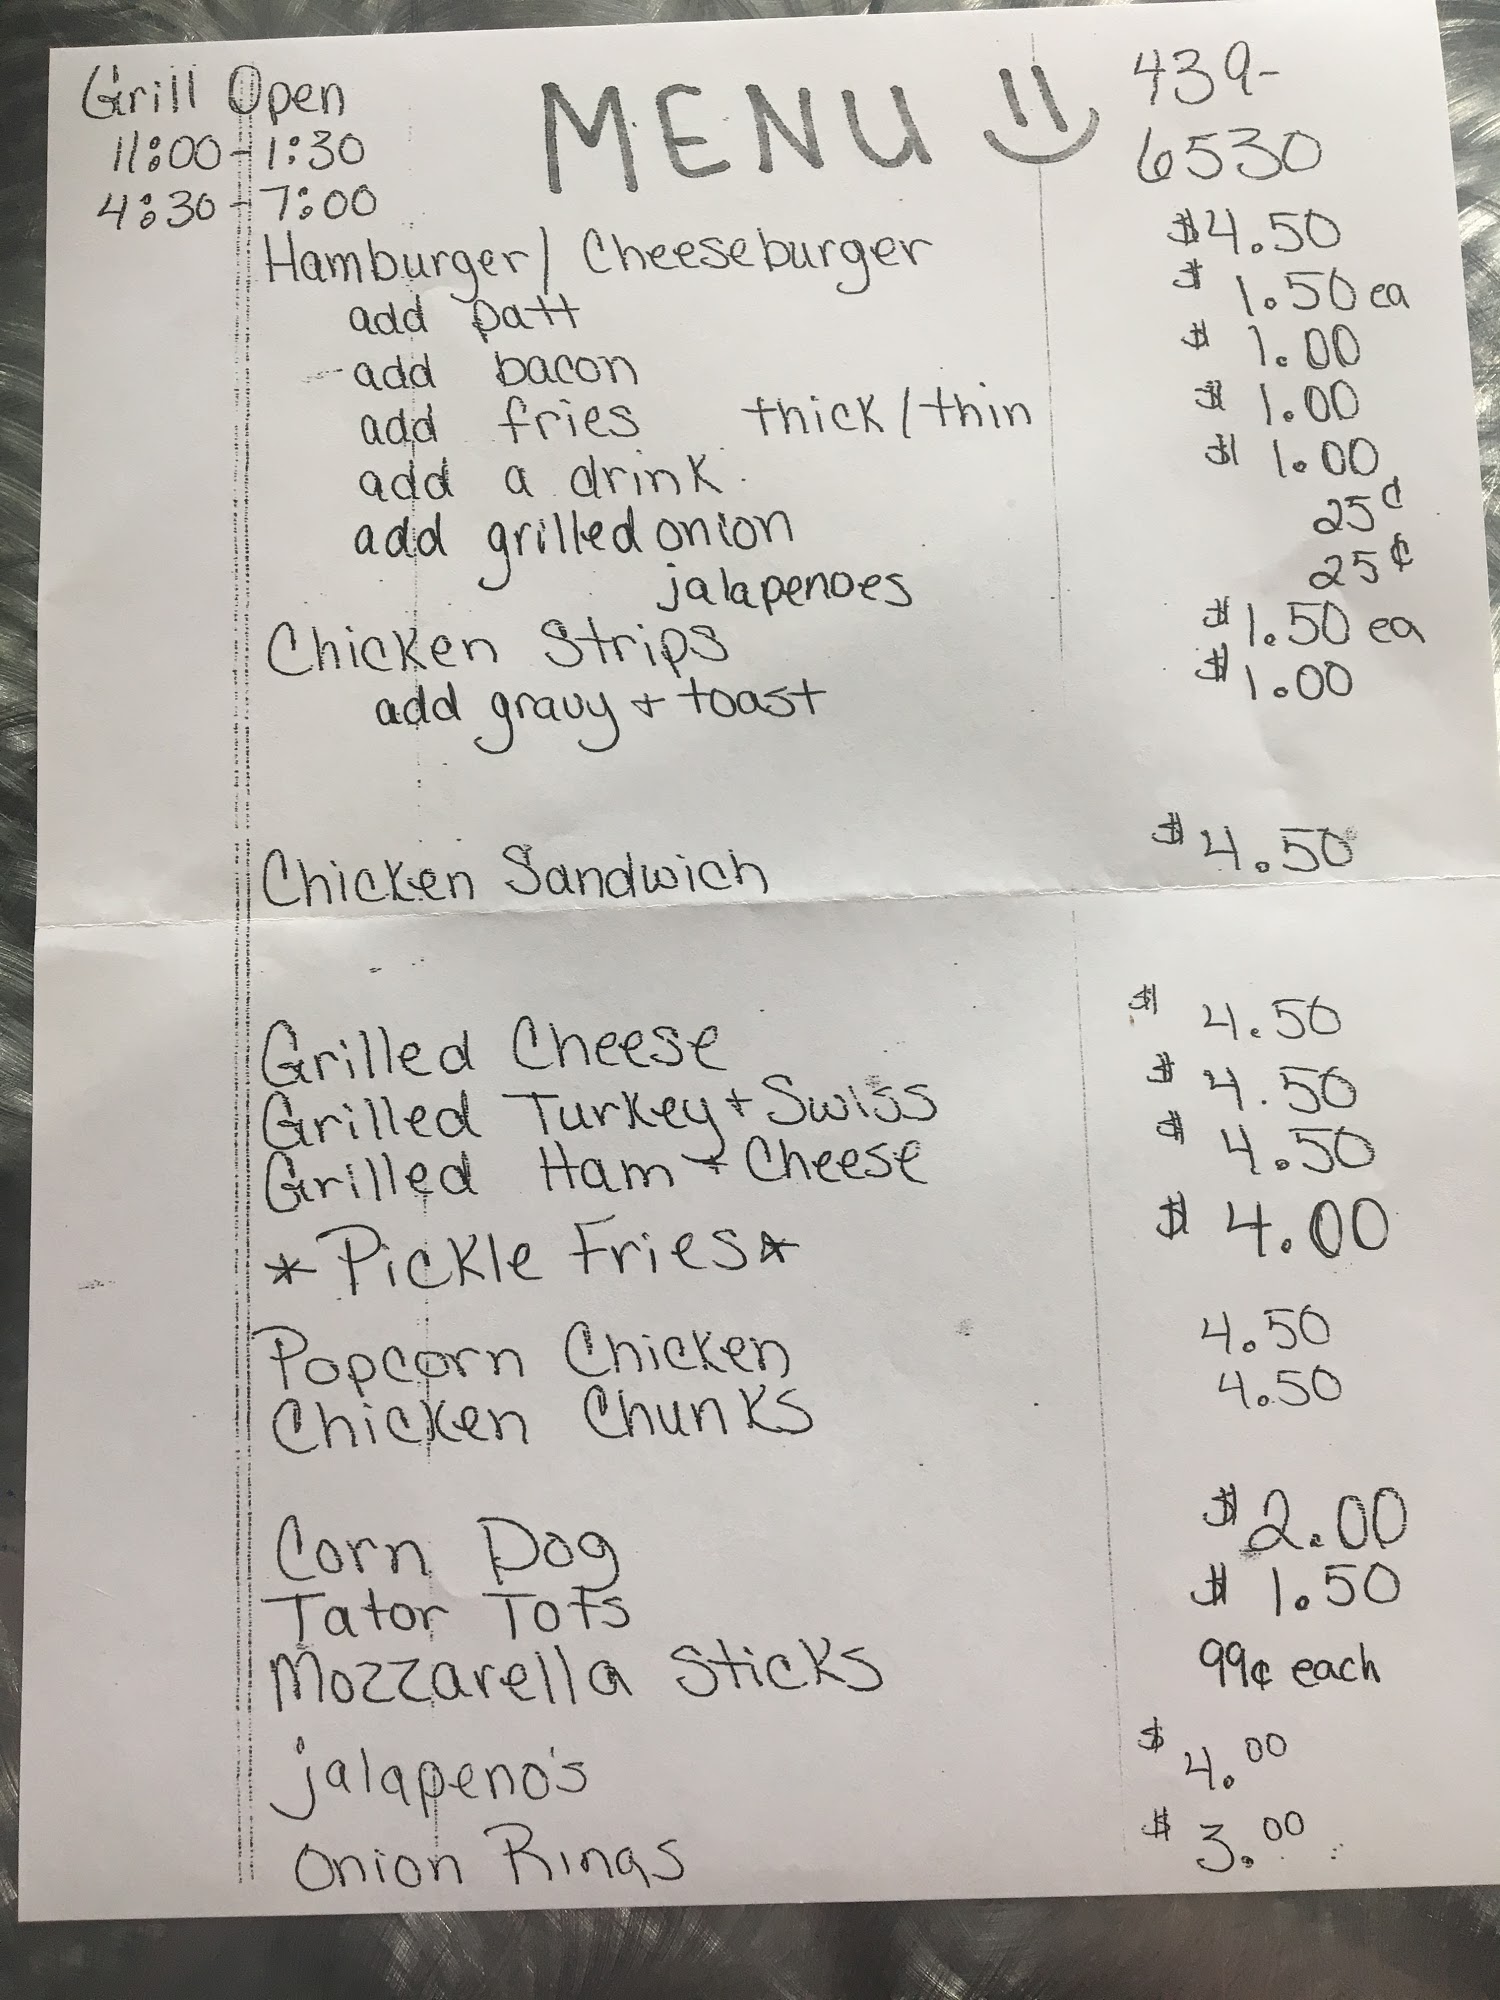 Grill Open
11:00-1:30
4:30-7:00
MENU
439-
6530
Hamburger/Cheeseburger $4.50
add patt $1.50 ea
add bacon $1.00
add fries thick/thin $1.00
add a drink $1.00
add grilled onion 25¢
jalapenoes 25¢
Chicken Strips $1.50 ea
add gravy + toast $1.00
Chicken Sandwich $4.50
Grilled Cheese $4.50
Grilled Turkey + Swiss $4.50
Grilled Ham + Cheese $4.50
*Pickle Fries* $4.00
Popcorn Chicken 4.50
Chicken Chunks 4.50
Corn Dog $2.00
Tator Tots $1.50
Mozzarella Sticks 99¢ each
jalapeno's $4.00
Onion Rings $3.00